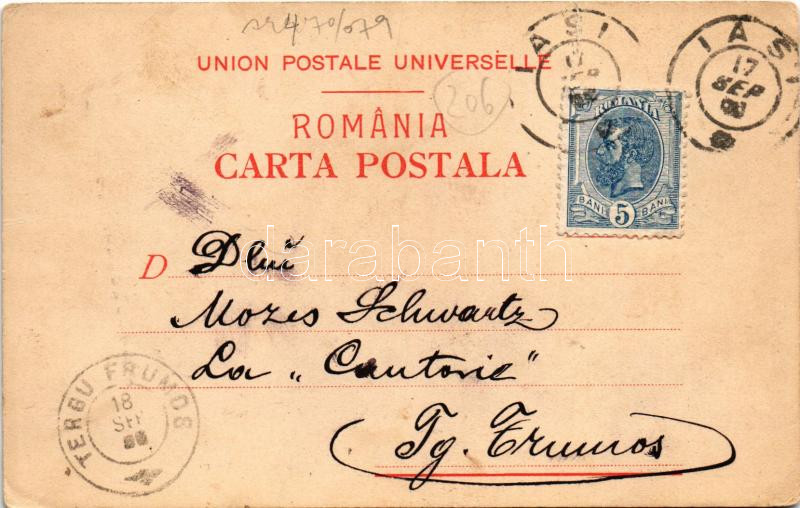 UNION POSTALE UNIVERSELLE
206
ROMÂNIA
CARTA POSTALA
IASI
17
SEP
IASI
17
SEP
ROMANIA
BANI 5 BANI
D Dlui
Mozes Schwartz
La „Cantorie"
Tg. Frumos
TERGU FRUMOS
18
SEP
darabanth